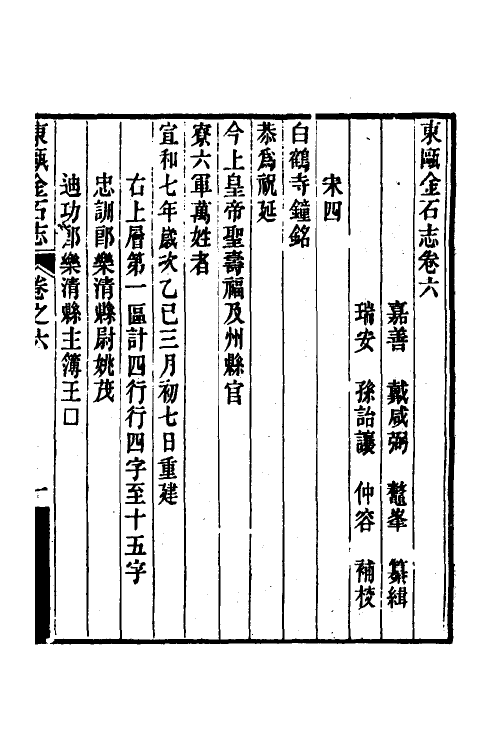 東甌金石志卷六
嘉善 戴咸弼 鼇峯 纂緝
瑞安 孫詒讓 仲容 補校
宋四
白鶴寺鐘銘
恭爲祝延
今上皇帝聖壽福及州縣官
寮六軍萬姓者
宣和七年歲次乙巳三月初七日重建
右上層第一區計四行行四字至十五字
忠訓郎樂清縣尉姚茂
迪功郎樂清縣主簿王□
東甌金石志 卷之六 一